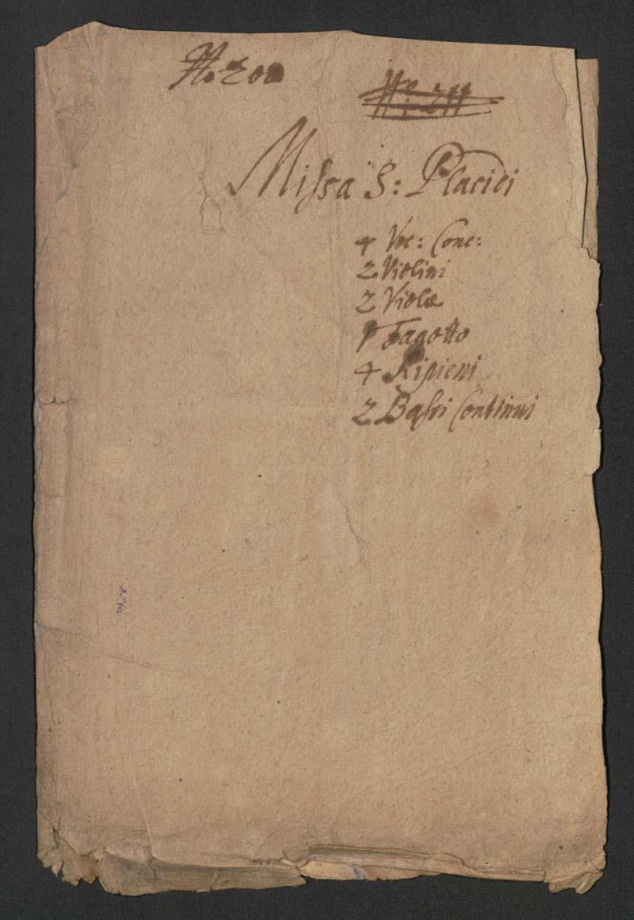 No 200
Missa S: Placidi
4 Voc: Conc:
2 Violini
2 Violæ
1 Fagotto
4 Ripieni
2 Bassi Continui